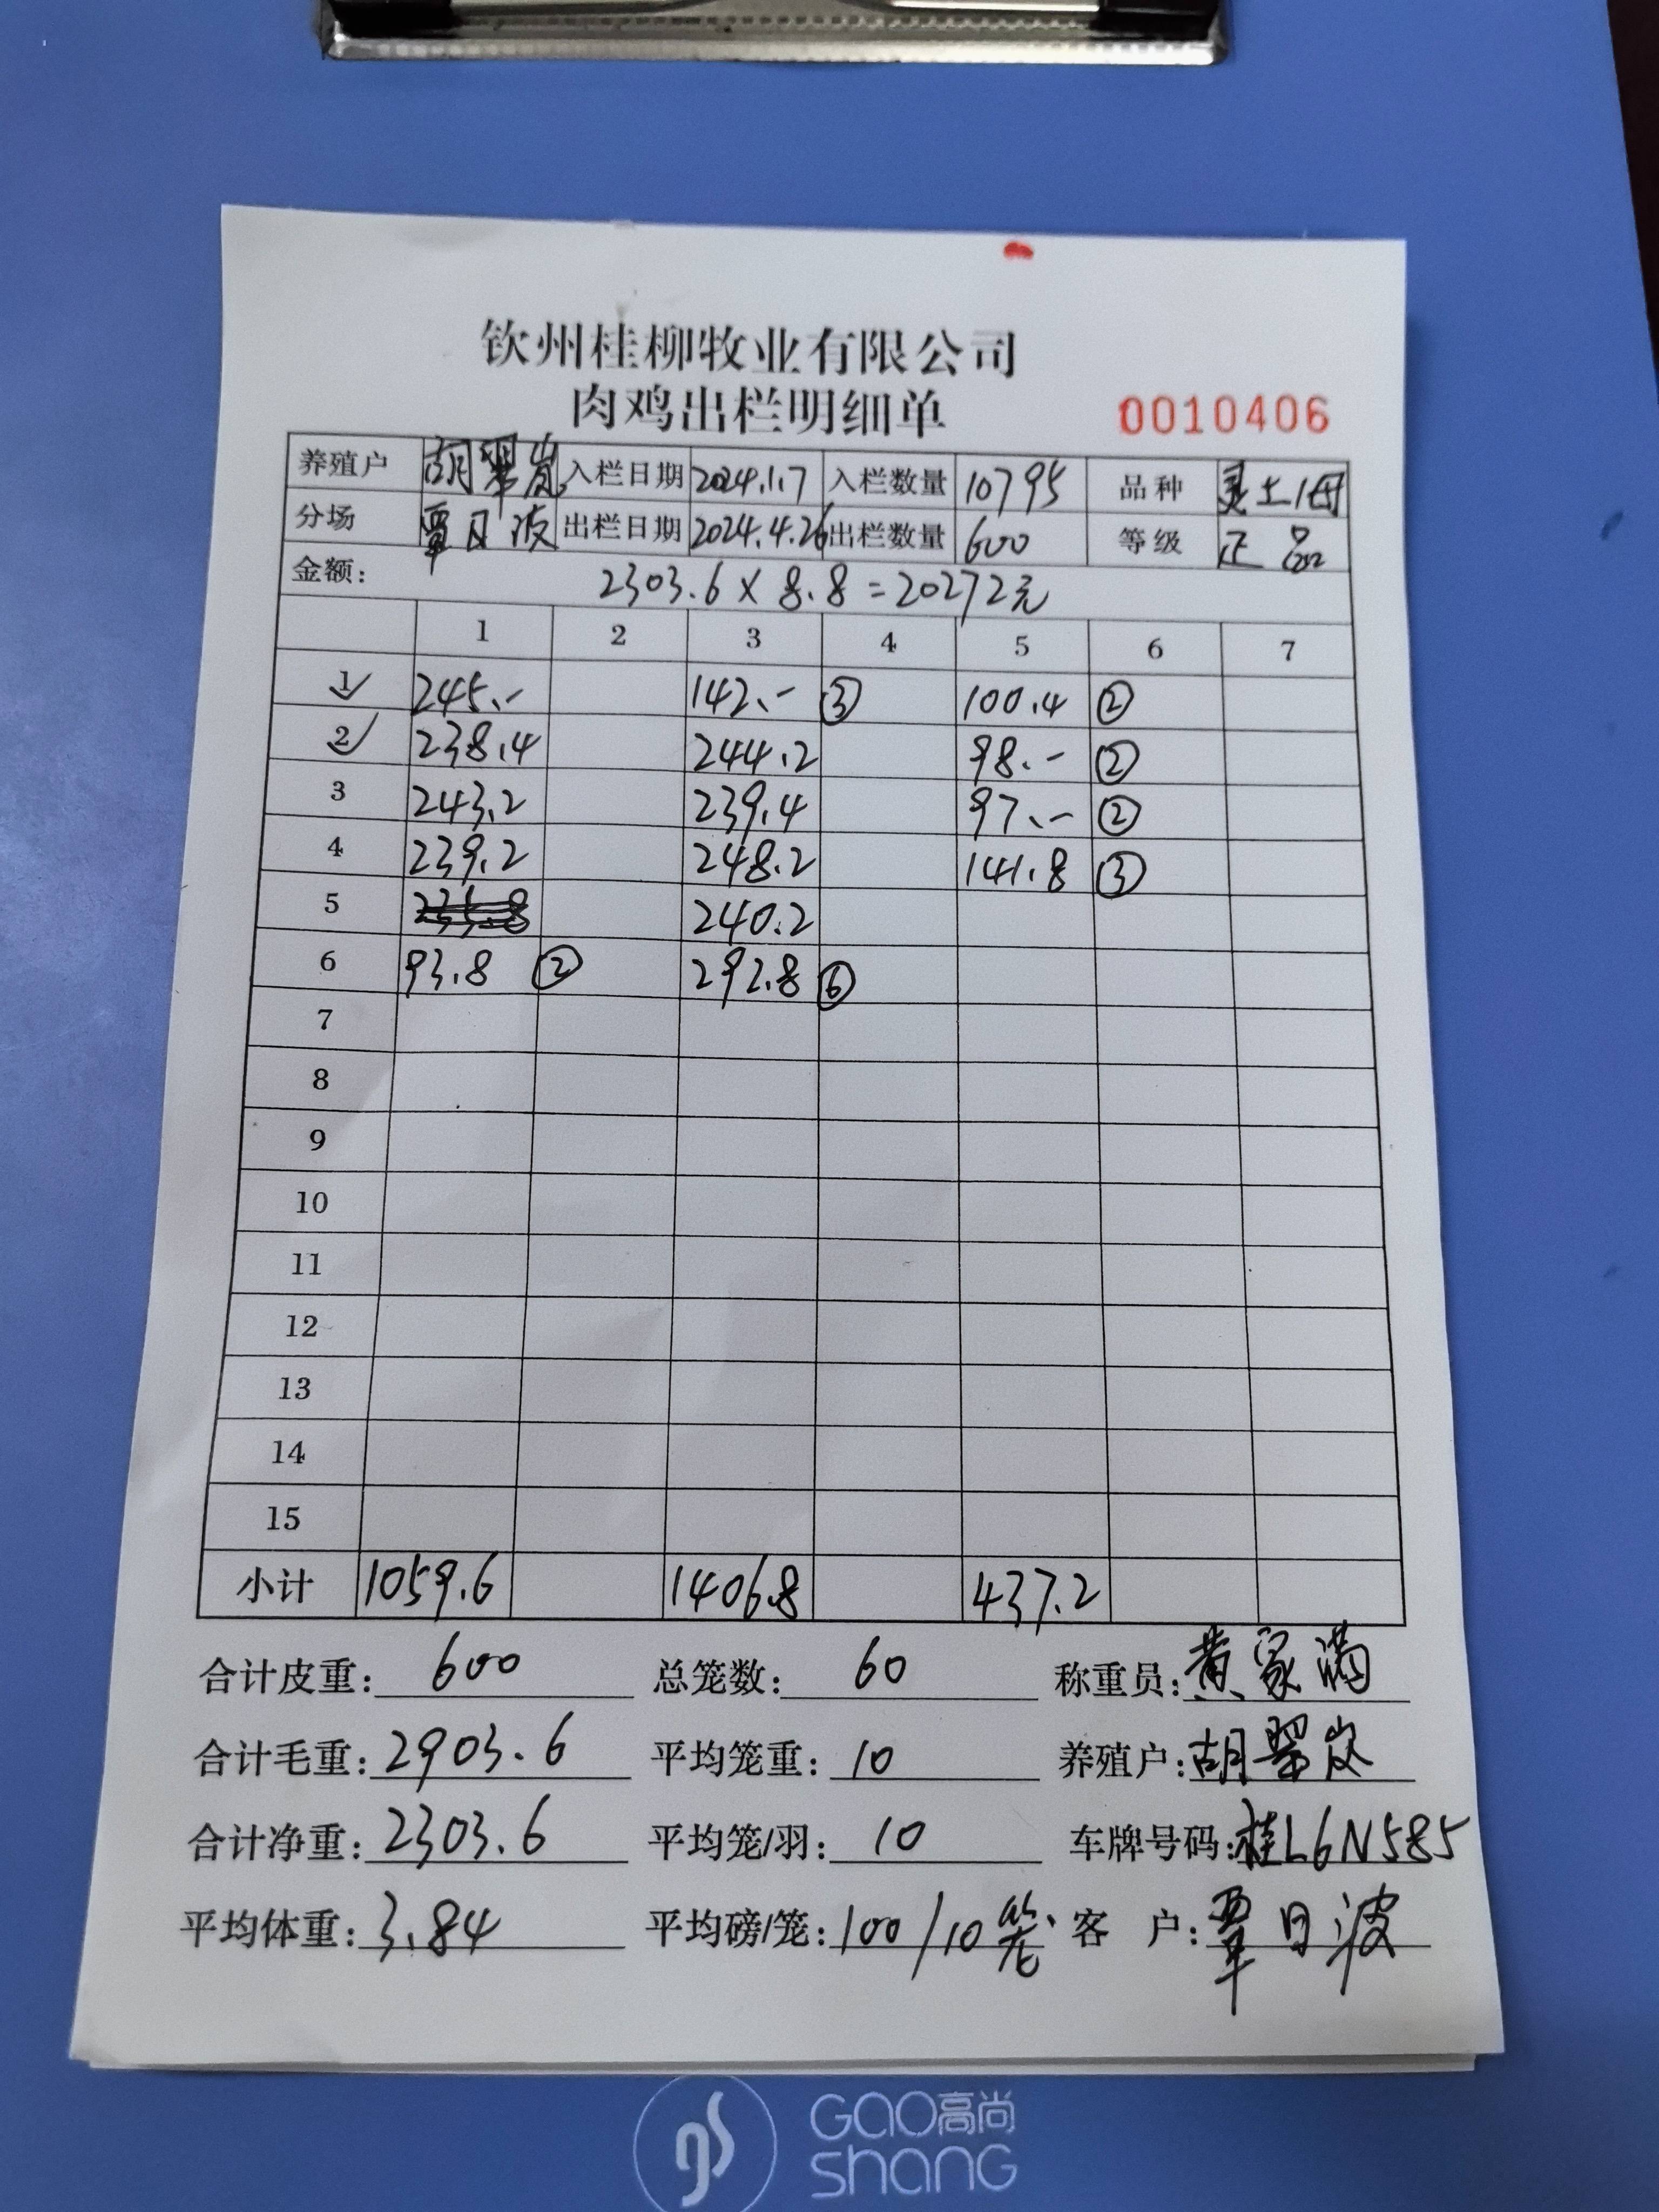 钦州桂柳牧业有限公司
肉鸡出栏明细单 0010406
养殖户 胡翠岚 入栏日期 2024.1.7 入栏数量 10795 品种 灵土1母
分场 覃日波 出栏日期 2024.4.26 出栏数量 600 等级 正品
金额: 2303.6×8.8=20272元
1 2 3 4 5 6 7
1 245.- 142.- ③ 100.4 ②
2 238.4 244.2 98.- ②
3 243.2 239.4 97.- ②
4 239.2 248.2 141.8 ③
5 240.2
6 93.8 ② 292.8 ⑥
7
8
9
10
11
12
13
14
15
小计 1059.6 1406.8 437.2
合计皮重: 600 总笼数: 60 称重员: 黄家满
合计毛重: 2903.6 平均笼重: 10 养殖户: 胡翠岚
合计净重: 2303.6 平均笼/羽: 10 车牌号码: 桂L6N585
平均体重: 3.84 平均磅/笼: 100/10笼 客户: 覃日波
GAO高尚
SHANG